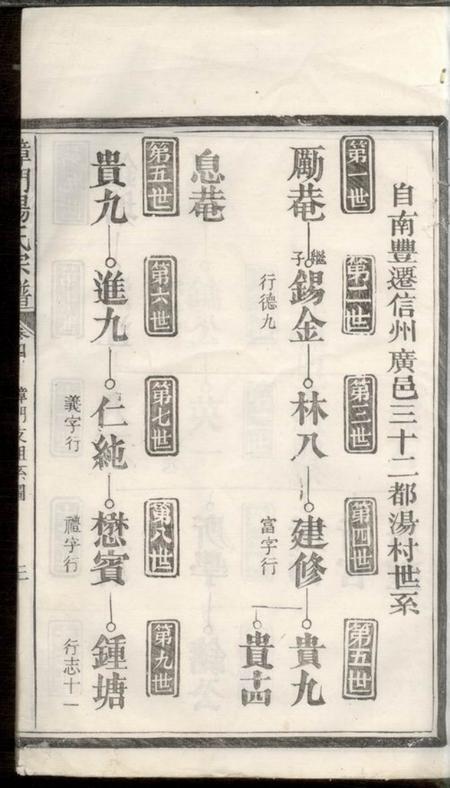 自南豐遷信州廣邑三十二都湯村世系
第一世
第二世
第三世
第四世
第五世
勵菴
繼子
錫金
行德九
林八
建修
富字行
貴九
貴十四
息菴
第五世
第六世
第七世
第八世
第九世
貴九
進九
仁純
義字行
懋賓
禮字行
鍾塘
行志十一
湯氏宗譜
卷四